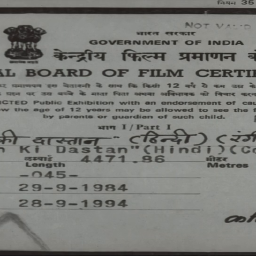 भारत सरकार
GOVERNMENT OF INDIA
केन्द्रीय फिल्म प्रमाणन
AL BOARD OF FILM CERTI
CTED Public Exhibition with an endorsement of cau
dow the age of 12 years may be allowed to see the f
by parents or guardian of such child.
भाग I/Part I
की दास्तान" (हिन्दी) (रंगी
n Ki Dastan"(Hindi)(Co
लम्बाई 4471.86 मीटर
Length Metres
-045-
29-9-1984
28-9-1994